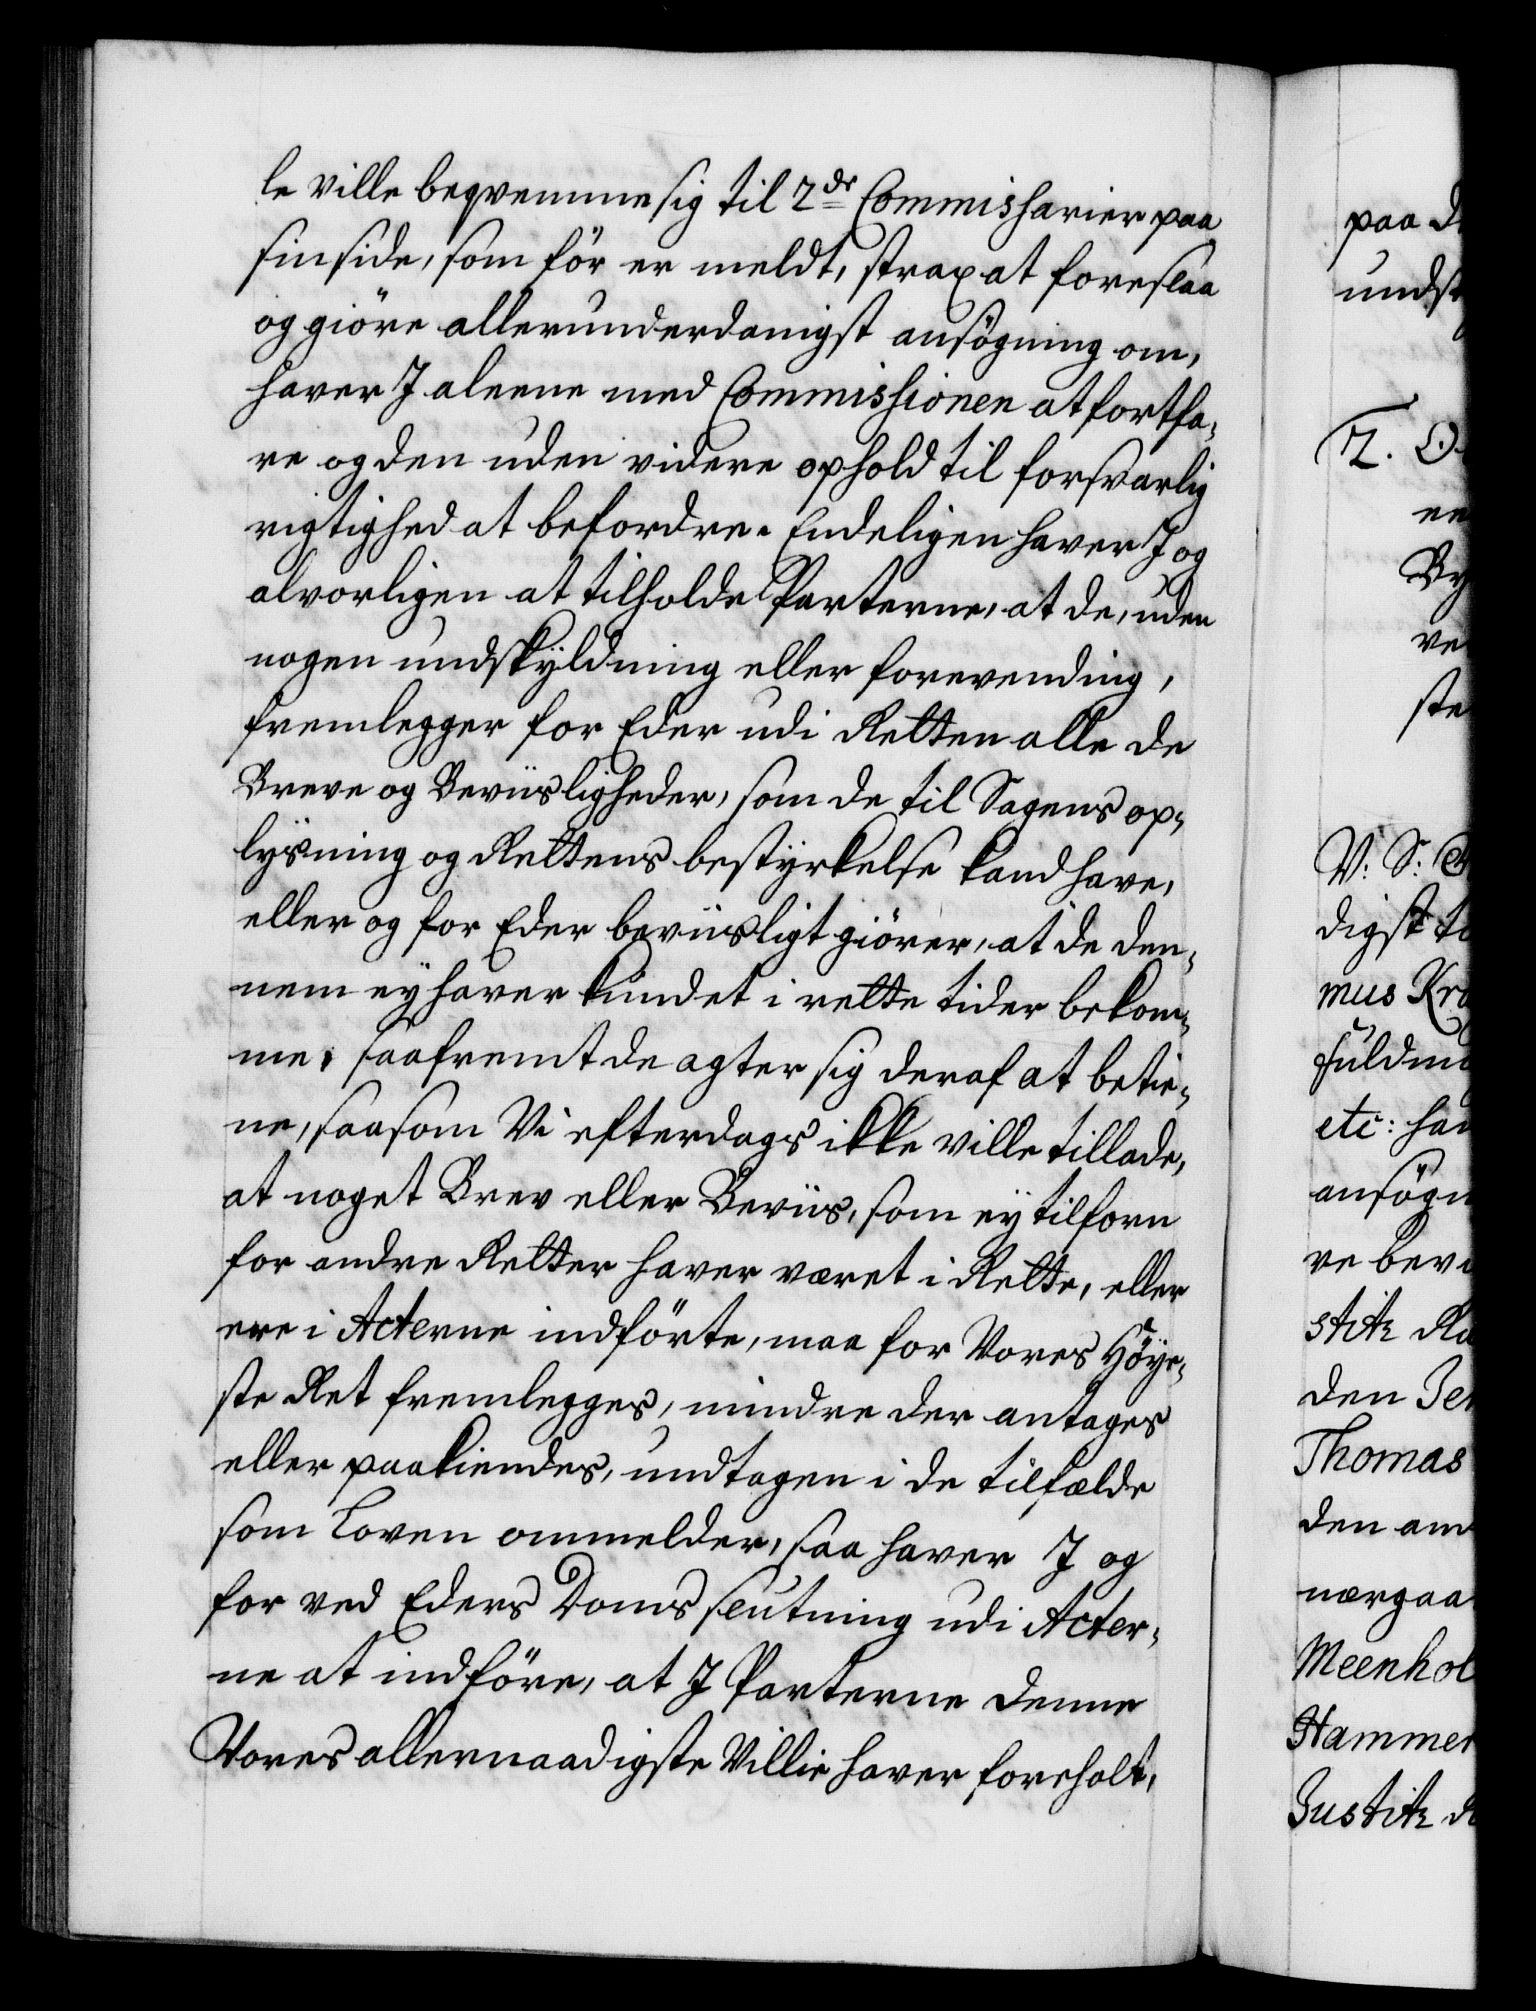 le ville beqvemme sig til 2de Commissarier paa
sin side, som för er meldt, strax at foreslaa
og giöre allerunderdanigst ansögning om,
haver I aleene med Commissionen at fortfa-
re og den uden videre ophold til forsvarlig
rigtighed at befordre. Endeligen haver I og
alvorligen at tilholde Parterne, at de, uden
nogen undskÿldning eller forevending,
fremlegger for Eder udi Retten alle de
Breve og Beviisligheder, som de til Sagens op-
lÿsning og Rettens bestÿrkelse kand have,
eller og for Eder beviisligt giörer, at de den-
nem eÿ haver kundet i rette tider bekom-
me, saafremt de agter sig deraf at betie-
ne, saasom Vi efterdags ikke ville tillade,
at noget Brev eller Beviis, som eÿ tilforn
for andre Retter haver været i Rette, eller
ere i Acterne indförte, maa for Vores Höÿe-
ste Ret fremlegges, mindre der antages
eller paakiendes, undtagen i de tilfælde
som Loven ommelder, saa haver I og
for ved Eders Doms slutning udi Acter-
ne at indföre, at I Parterne denne
Vores allernaadigste Villie haver foreholt,
paa d
undst
2. O
ee
By
ve
ste
V: S: G
digst ti
mus Kra
fuldm
etc: hav
ansögn
re bevi
stitz Ra
den Jen
Thomas
den am
nærgaa
Meenhol
Hammer
Justitz R